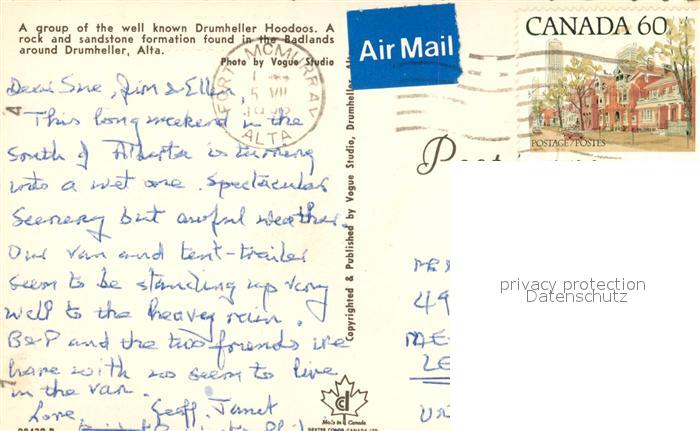 A group of the well known Drumheller Hoodoos. A
rock and sandstone formation found in the Badlands
around Drumheller, Alta.
Photo by Vogue Studio
Dear Sue, Jim & Ellen,
This long weekend in the
South of Alberta is turning
into a wet one. Spectacular
Scenery but awful weather.
Our van and tent-trailer
seem to be standing up very
well to the heavy rain.
B&P and the two friends we
have with us seem to live
in the van.
Love, Geoff, Janet
Copyrighted & Published by Vogue Studio, Drumheller, Alta.
FORT MCMURRAY
5 VII
ALTA
Air Mail
CANADA 60
POSTAGE/POSTES
49
privacy protection
Datenschutz
Made in Canada